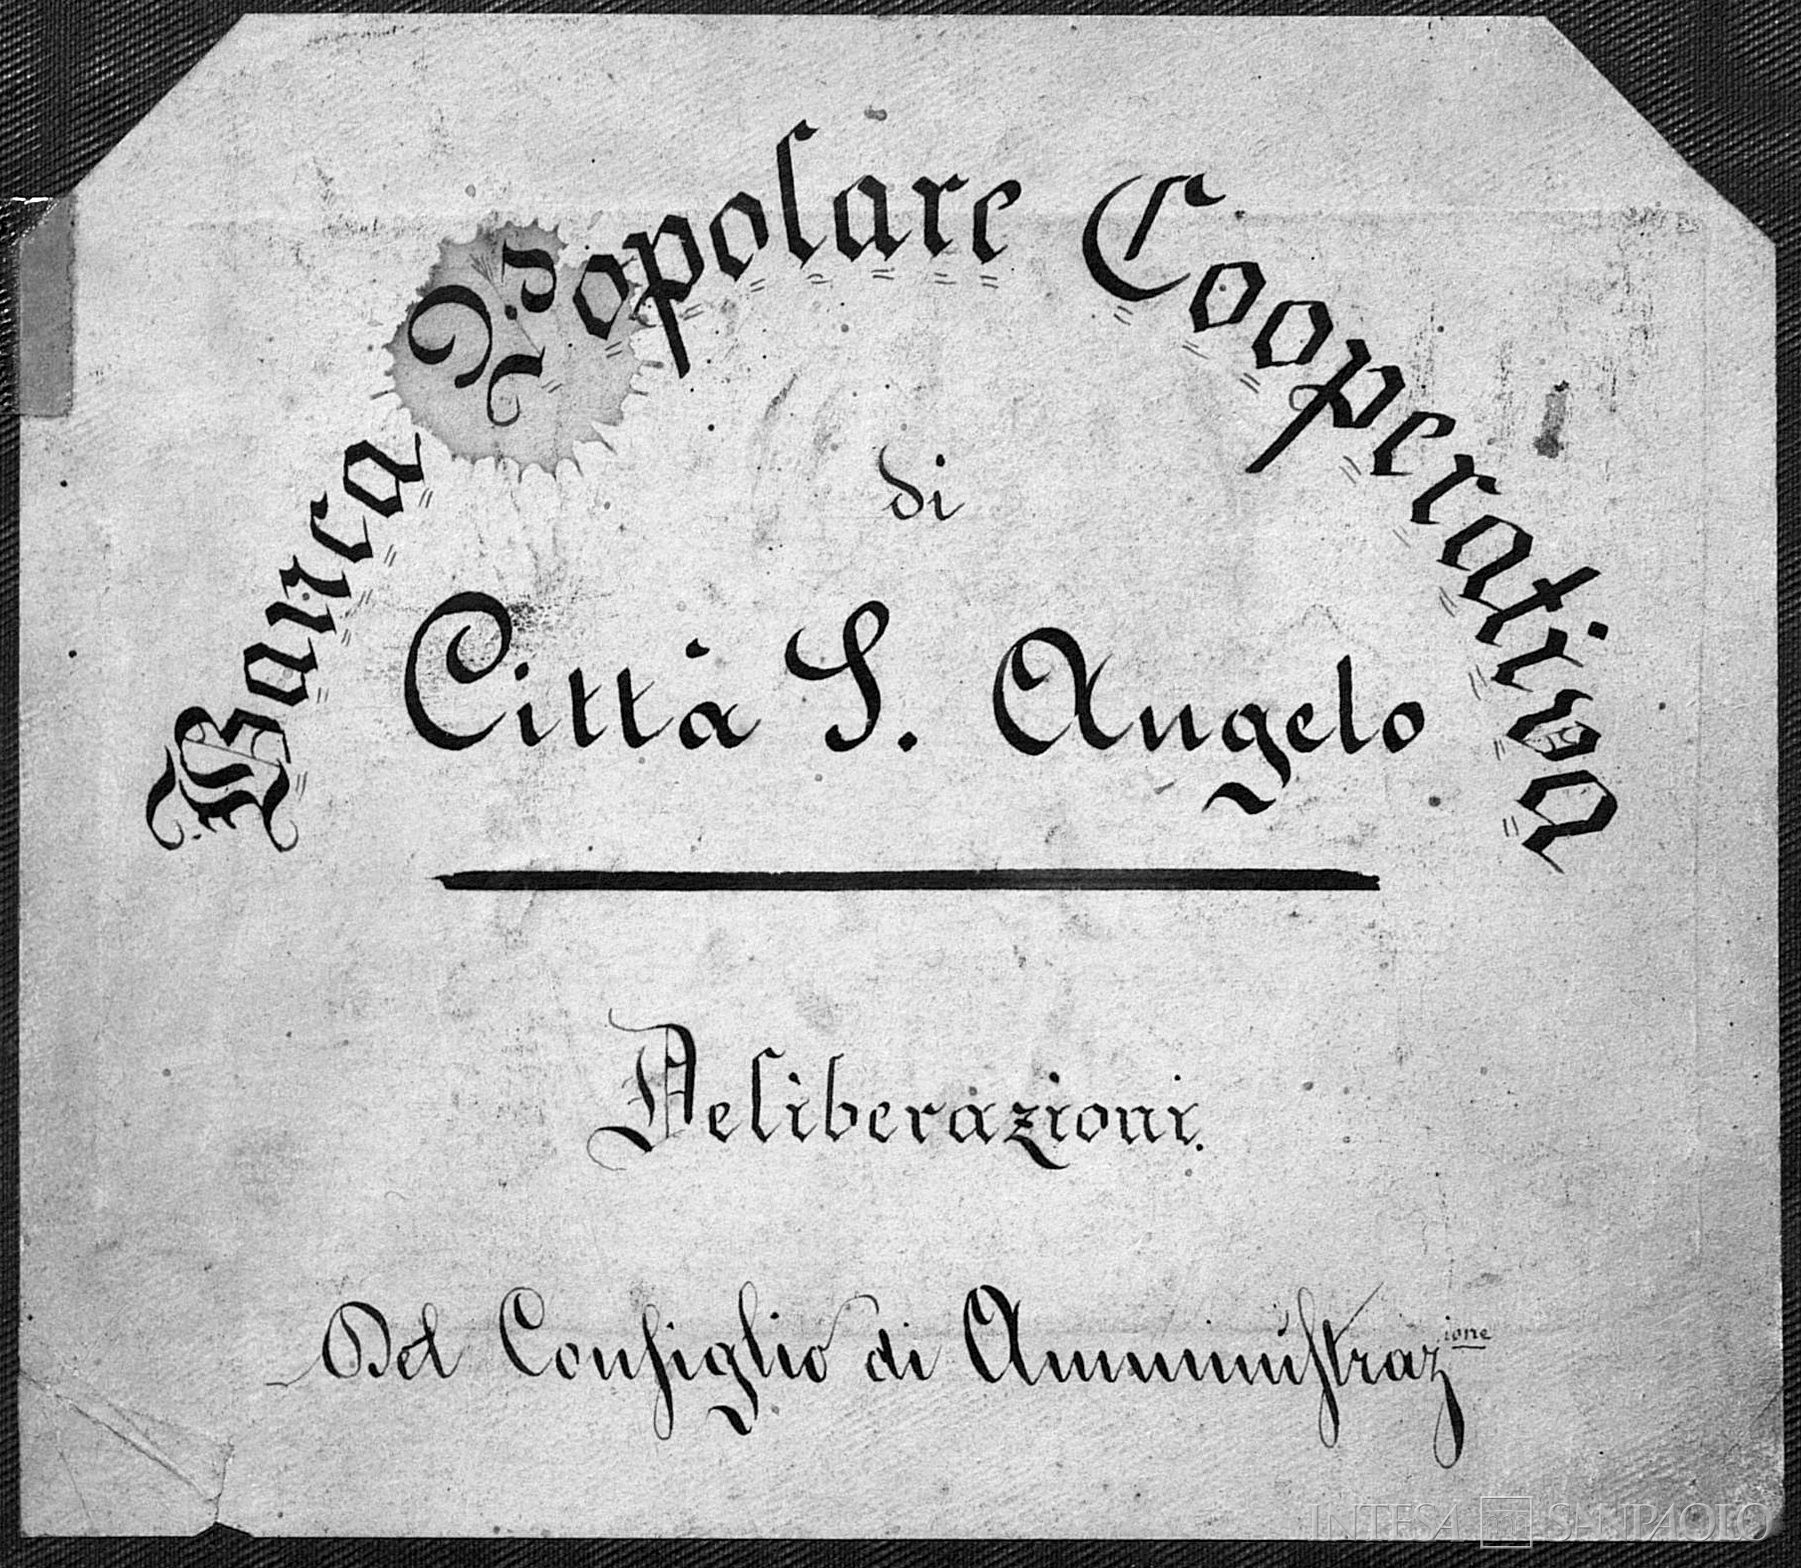 Banca Popolare Cooperativa
di
Città S. Angelo
Deliberazioni.
Del Consiglio di Amministrazione
INTESA SANPAOLO